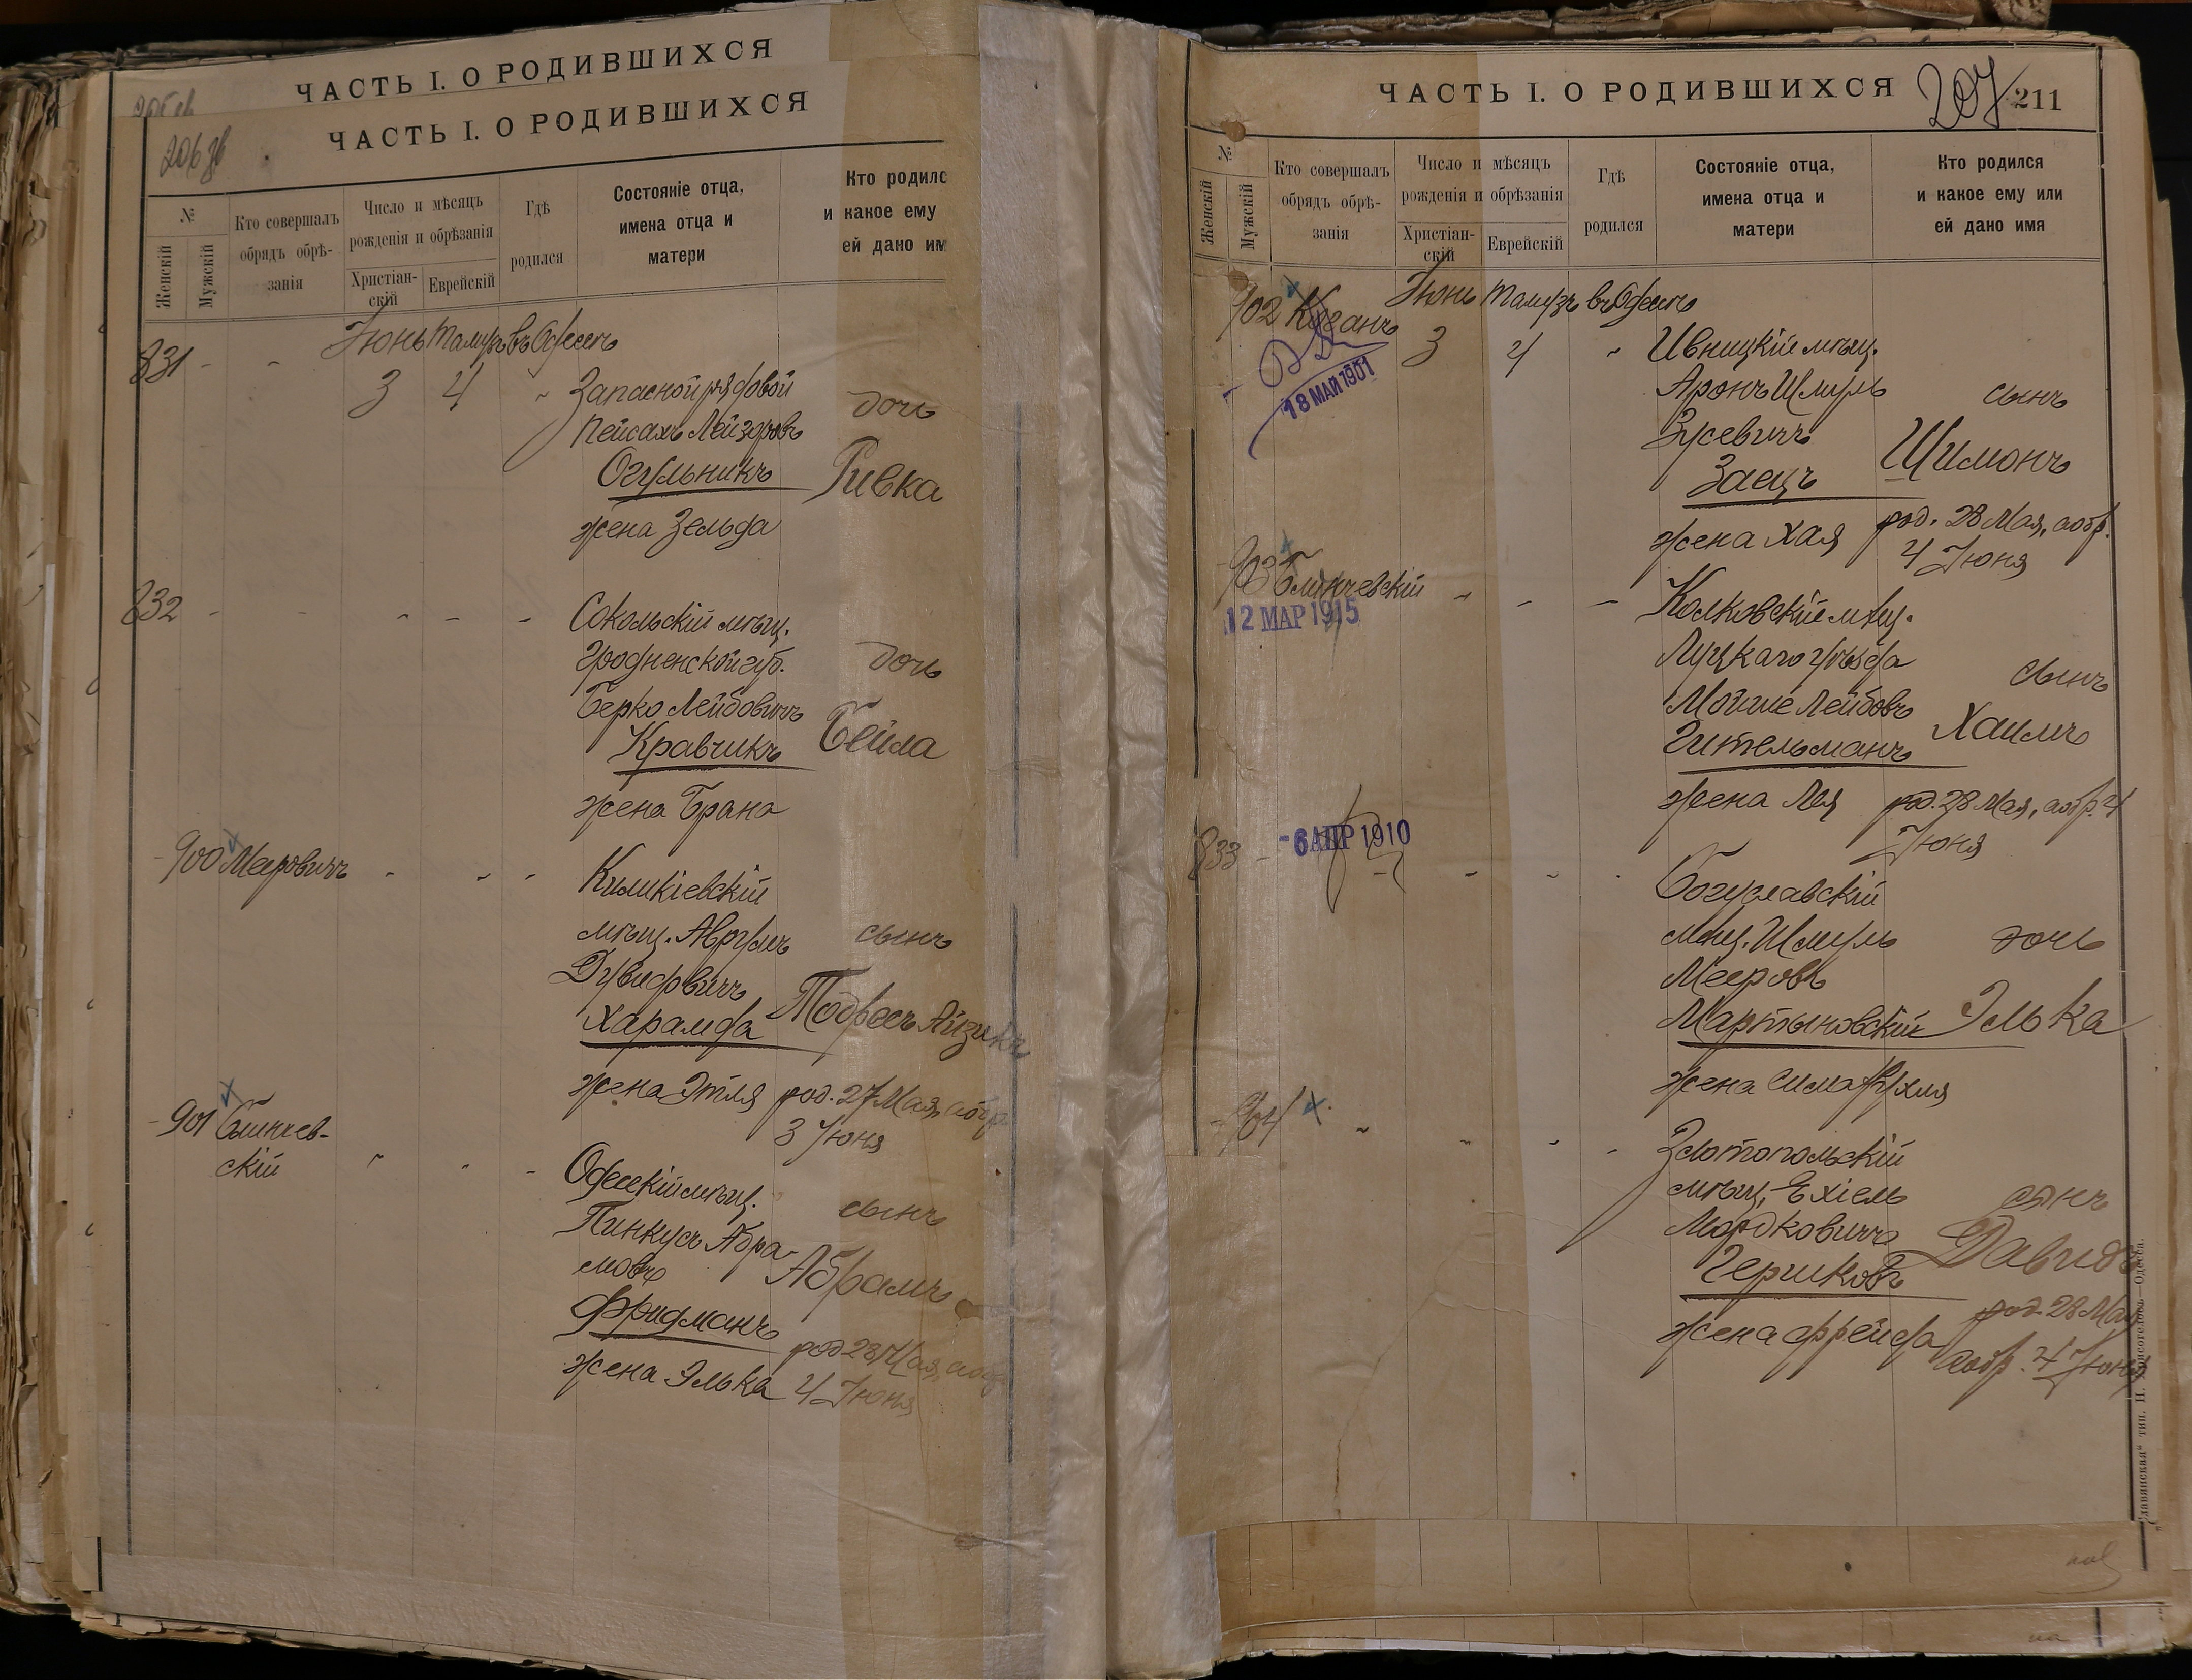 ЧАСТЬ I. О РОДИВШИХСЯ
ЧАСТЬ I. О РОДИВШИХСЯ
206 зв
№
Женскій
Мужскій
Кто совершалъ обрядъ обрѣ-занія
Число и мѣсяцъ рожденія и обрѣзанія
Христіан-скій
Еврейскій
Гдѣ родился
Состояніе отца, имена отца и матери
Кто родилс
и какое ему
ей дано им
Іюнь Тамузъ въ Одессѣ
831 - - 3 4 "
Запасной рядовой
Пейсахъ Лейзеровъ
Огульникъ
жена Зельда
дочь
Ривка
832 - - - - -
Сокольскій мѣщ.
Гродненской губ.
Берко Лейбовичъ
Кравчикъ
жена Брана
дочь
Бейла
900 Мееровичъ - - -
Киликіевскій
мѣщ. Аврумъ
Дувидовичъ
Харамда
жена Этля
сынъ
Тодресъ Айзикъ
род. 27 Мая, а обр.
3 Іюня
901 Блинчев-
скій
Одесскій мѣщ.
Пинкусъ Абра-
мовъ
Фридманъ
жена Элька
сынъ
Абрамъ
род 28 Мая, а обр
4 Іюня
ЧАСТЬ I. О РОДИВШИХСЯ
207
211
№
Женскій
Мужскій
Кто совершалъ обрядъ обрѣ-занія
Число и мѣсяцъ рожденія и обрѣзанія
Христіан-скій
Еврейскій
Гдѣ родился
Состояніе отца, имена отца и матери
Кто родился и какое ему или ей дано имя
Іюнь Тамузъ въ Одессѣ
902 Коганъ 3 4 "
18 МАЙ 1901
Ивницкій мѣщ.
Аронъ Шмуль
Зусевичъ
Заецъ
жена Хая
сынъ
Шимонъ
род. 28 Мая, а обр.
4 Іюня
903 Блинчевскій - - -
12 МАР 1915
Колковскій мѣщ.
Луцкаго уѣзда
Мошие Лейбовъ
Гительманъ
жена Лея
сынъ
Хаимъ
род. 28 Мая, а обр. 4
Іюня
833 -
-6 АПР 1910
Богуславскій
мѣщ. Шмуль
Мееровъ
Мартыновскій
жена Сима Рухля
дочь
Элька
904
Златопольскій
мѣщ. Ехіель
Мордковичъ
Гершковъ
жена Фрейда
сынъ
Давидъ
род. 28 Мая
а обр. 4 Іюня